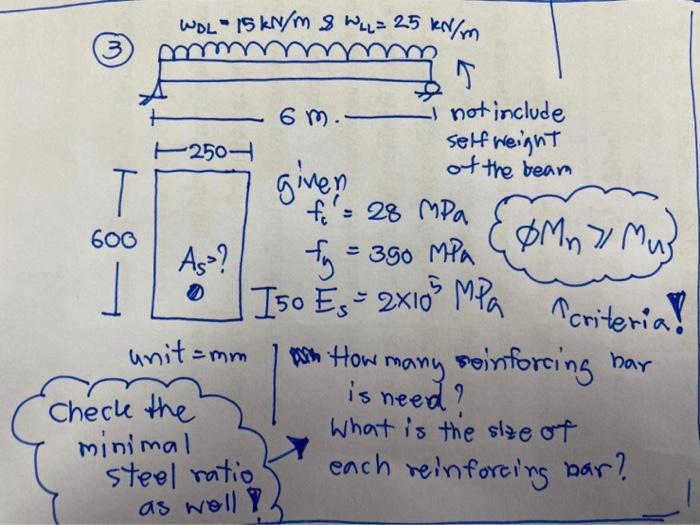 ③
WDL = 15 kN/m & WLL = 25 kN/m
6 m.
not include
self weight
of the beam
250
600
As=?
50
given
fc' = 28 MPa
fy = 390 MPa
Es = 2×10⁵ MPa
ØMn ≥ Mu
↑criteria!
unit = mm
How many reinforcing bar
is need?
What is the size of
each reinforcing bar?
Check the
minimal
steel ratio
as well!